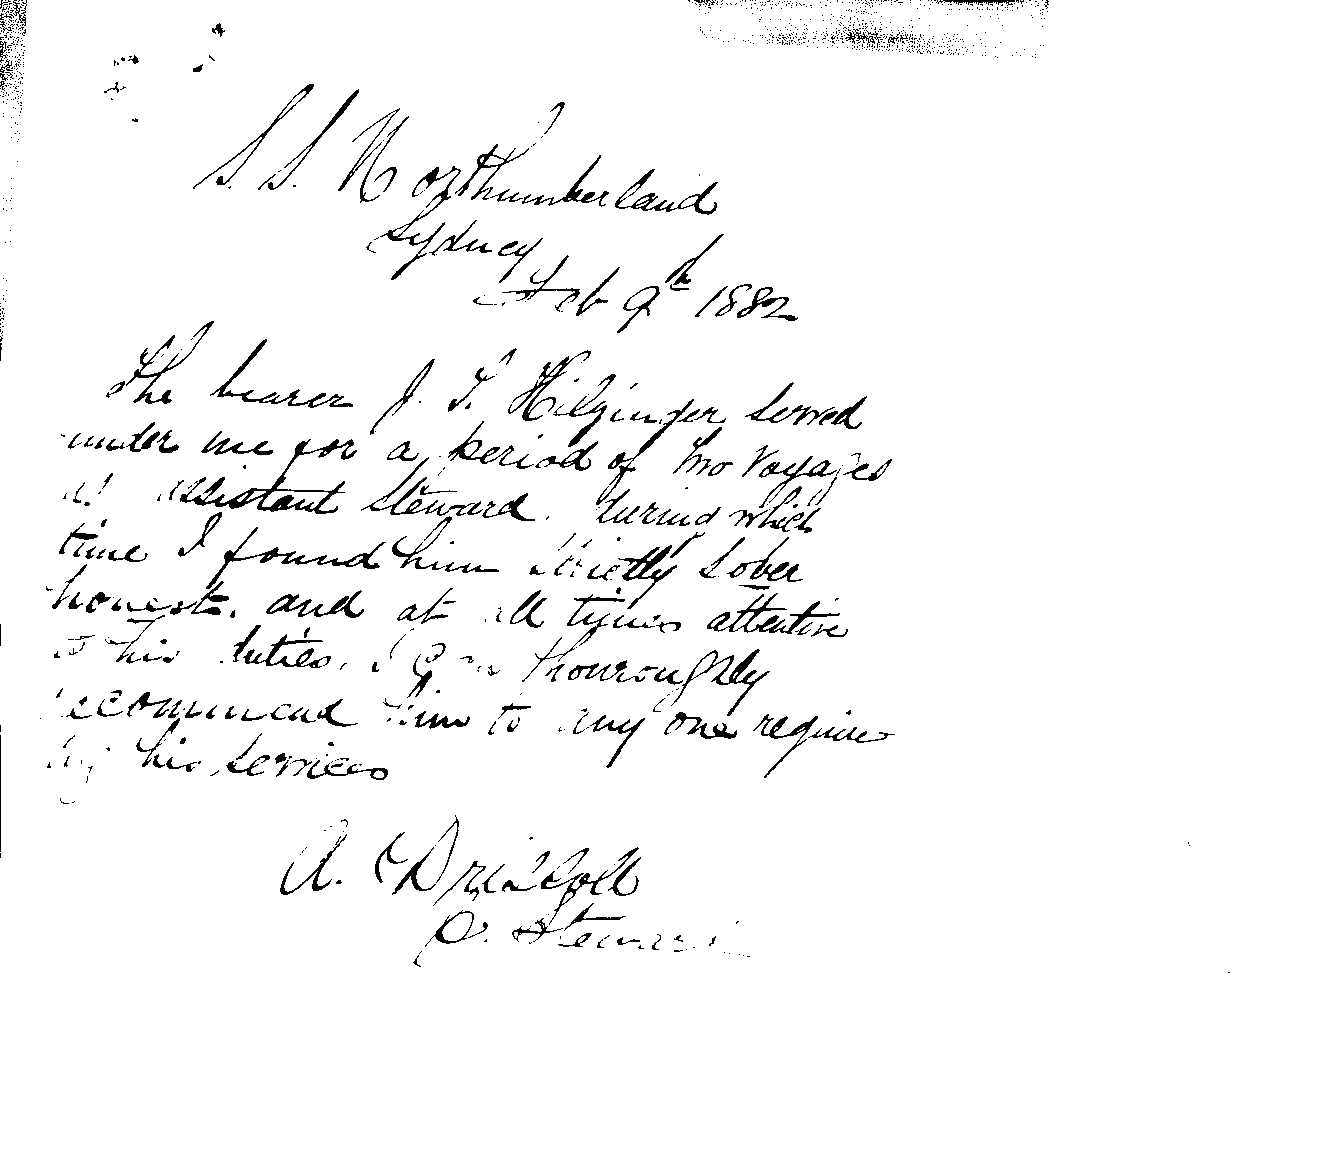 S.S. Northumberland
Sydney
Feb 9th 1882
The bearer J. T. Hilzinger served
under me for a period of two voyages
as assistant Steward. during which
time I found him strictly sober
honest. and at all times attentive
to his duties. I can thouroughly
recommend him to any one requir
ing his services
A. O'Driscoll
C. Steward